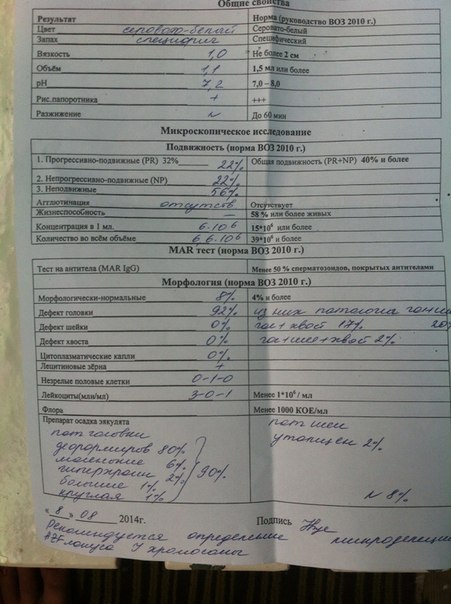 Общие свойства
Результат Норма (руководство ВОЗ 2010 г.)
Цвет серовато-белый Серовато-белый
Запах специфич Специфический
Вязкость 1,0 Не более 2 см
Объём 1,1 1,5 мл или более
pH 7,2 7,0 – 8,0
Рис.папоротника + +++
Разжижение N До 60 мин
Микроскопическое исследование
Подвижность (норма ВОЗ 2010 г.)
1. Прогрессивно-подвижные (PR) 32% 22% Общая подвижность (PR+NP) 40% и более
2. Непрогрессивно-подвижные (NP) 22%
3. Неподвижные 56%
Агглютинация отсутств Отсутствует
Жизнеспособность — 58 % или более живых
Концентрация в 1 мл. 6·10⁶ 15*10⁶ или более
Количество во всём объёме 6,6·10⁶ 39*10⁶ и более
MAR тест (норма ВОЗ 2010 г.)
Тест на антитела (MAR IgG) Менее 50 % сперматозоидов, покрытых антителами
Морфология (норма ВОЗ 2010 г.)
Морфологически-нормальные 8% 4% и более
Дефект головки 92% из них патология
Дефект шейки 0% гол+хвост 17%
Дефект хвоста 0% гол+шее+хвост 2%
Цитоплазматические капли 0%
Лецитиновые зёрна +
Незрелые половые клетки 0-1-0
Лейкоциты(млн/мл) 3-0-1 Менее 1*10⁶ / мл
Флора Менее 1000 КОЕ/мл
Препарат осадка эякулята
пат головки пат шеи
деформиров 80% утолщен 2%
маленькие 6%
гиперхром 2% 90%
большие 1%
круглая 1% N 8%
« 8 » 08 2014г. Подпись
Рекомендуется определение микроделеции
AZF локуса Y хромосомы